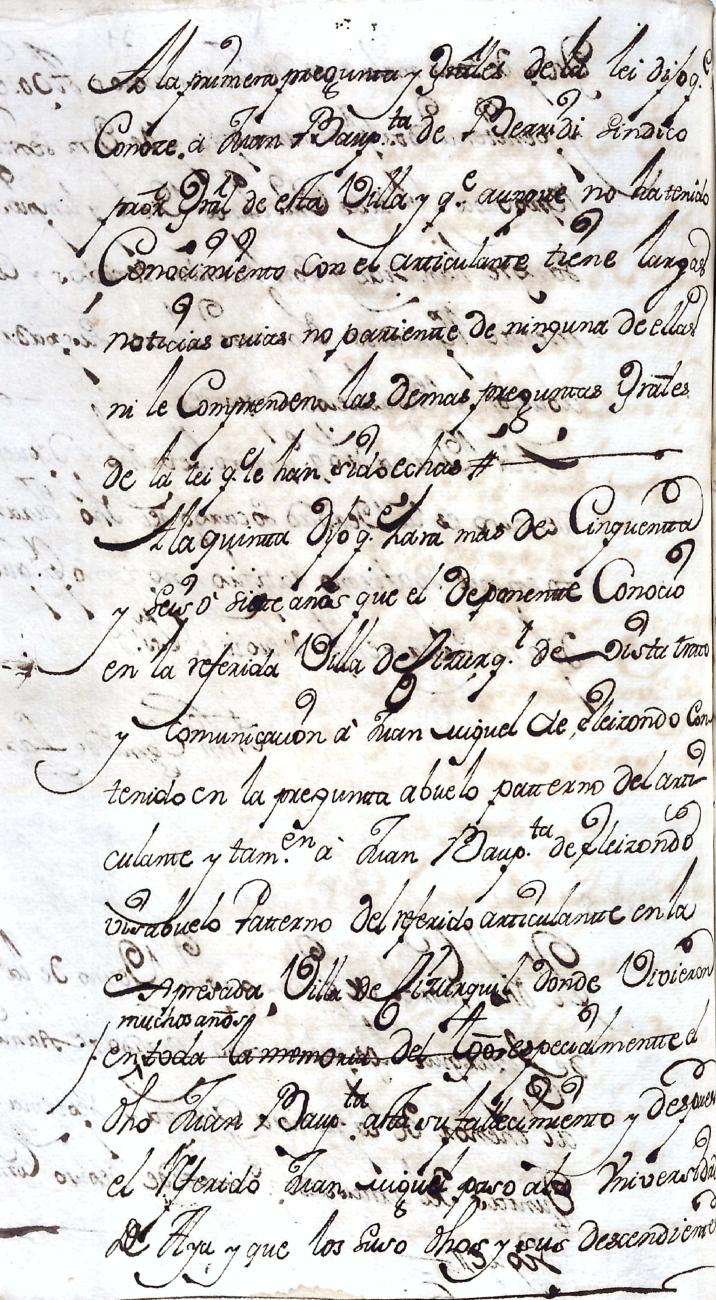 A la primera pregunta y Grales de la lei dijo q.e
Conoze. á Juan Baup.ta de Berridi sindico
pror Gral de esta Villa y q.e aunque no ha tenido
Conocimiento con el articulante tiene largas
noticias suias no pariente de ninguna de ellas
ni le Comprenden las demas preguntas Grales
de la lei q.e le han sido echas #
A la quinta dijo q.e hara mas de Cinquenta
y seis ó siete años que el deponente Conocio
en la referida Villa de Zizurq.l de Vista trato
y Comunicacion á Juan miguel de eleizondo Con
tenido en la pregunta abuelo patterno del arti
culante y tam.en á Juan Baup.ta de eleizondo
visabuelo Patterno del referido articulantte en la
Expresada Villa de Zizurquil donde Vivieron
muchos años
en toda la memoria del especialmentte el
dho Juan Baup.ta asta su fallecimiento y despues
el Referido Juan miguel paso a la Vniversidad
de Aya y que los suso dhos y sus descendientes